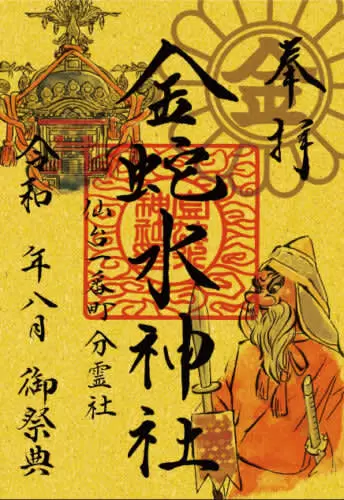 奉拝
金
金蛇水神社
仙台一番町 分霊社
令和 年八月 御祭典